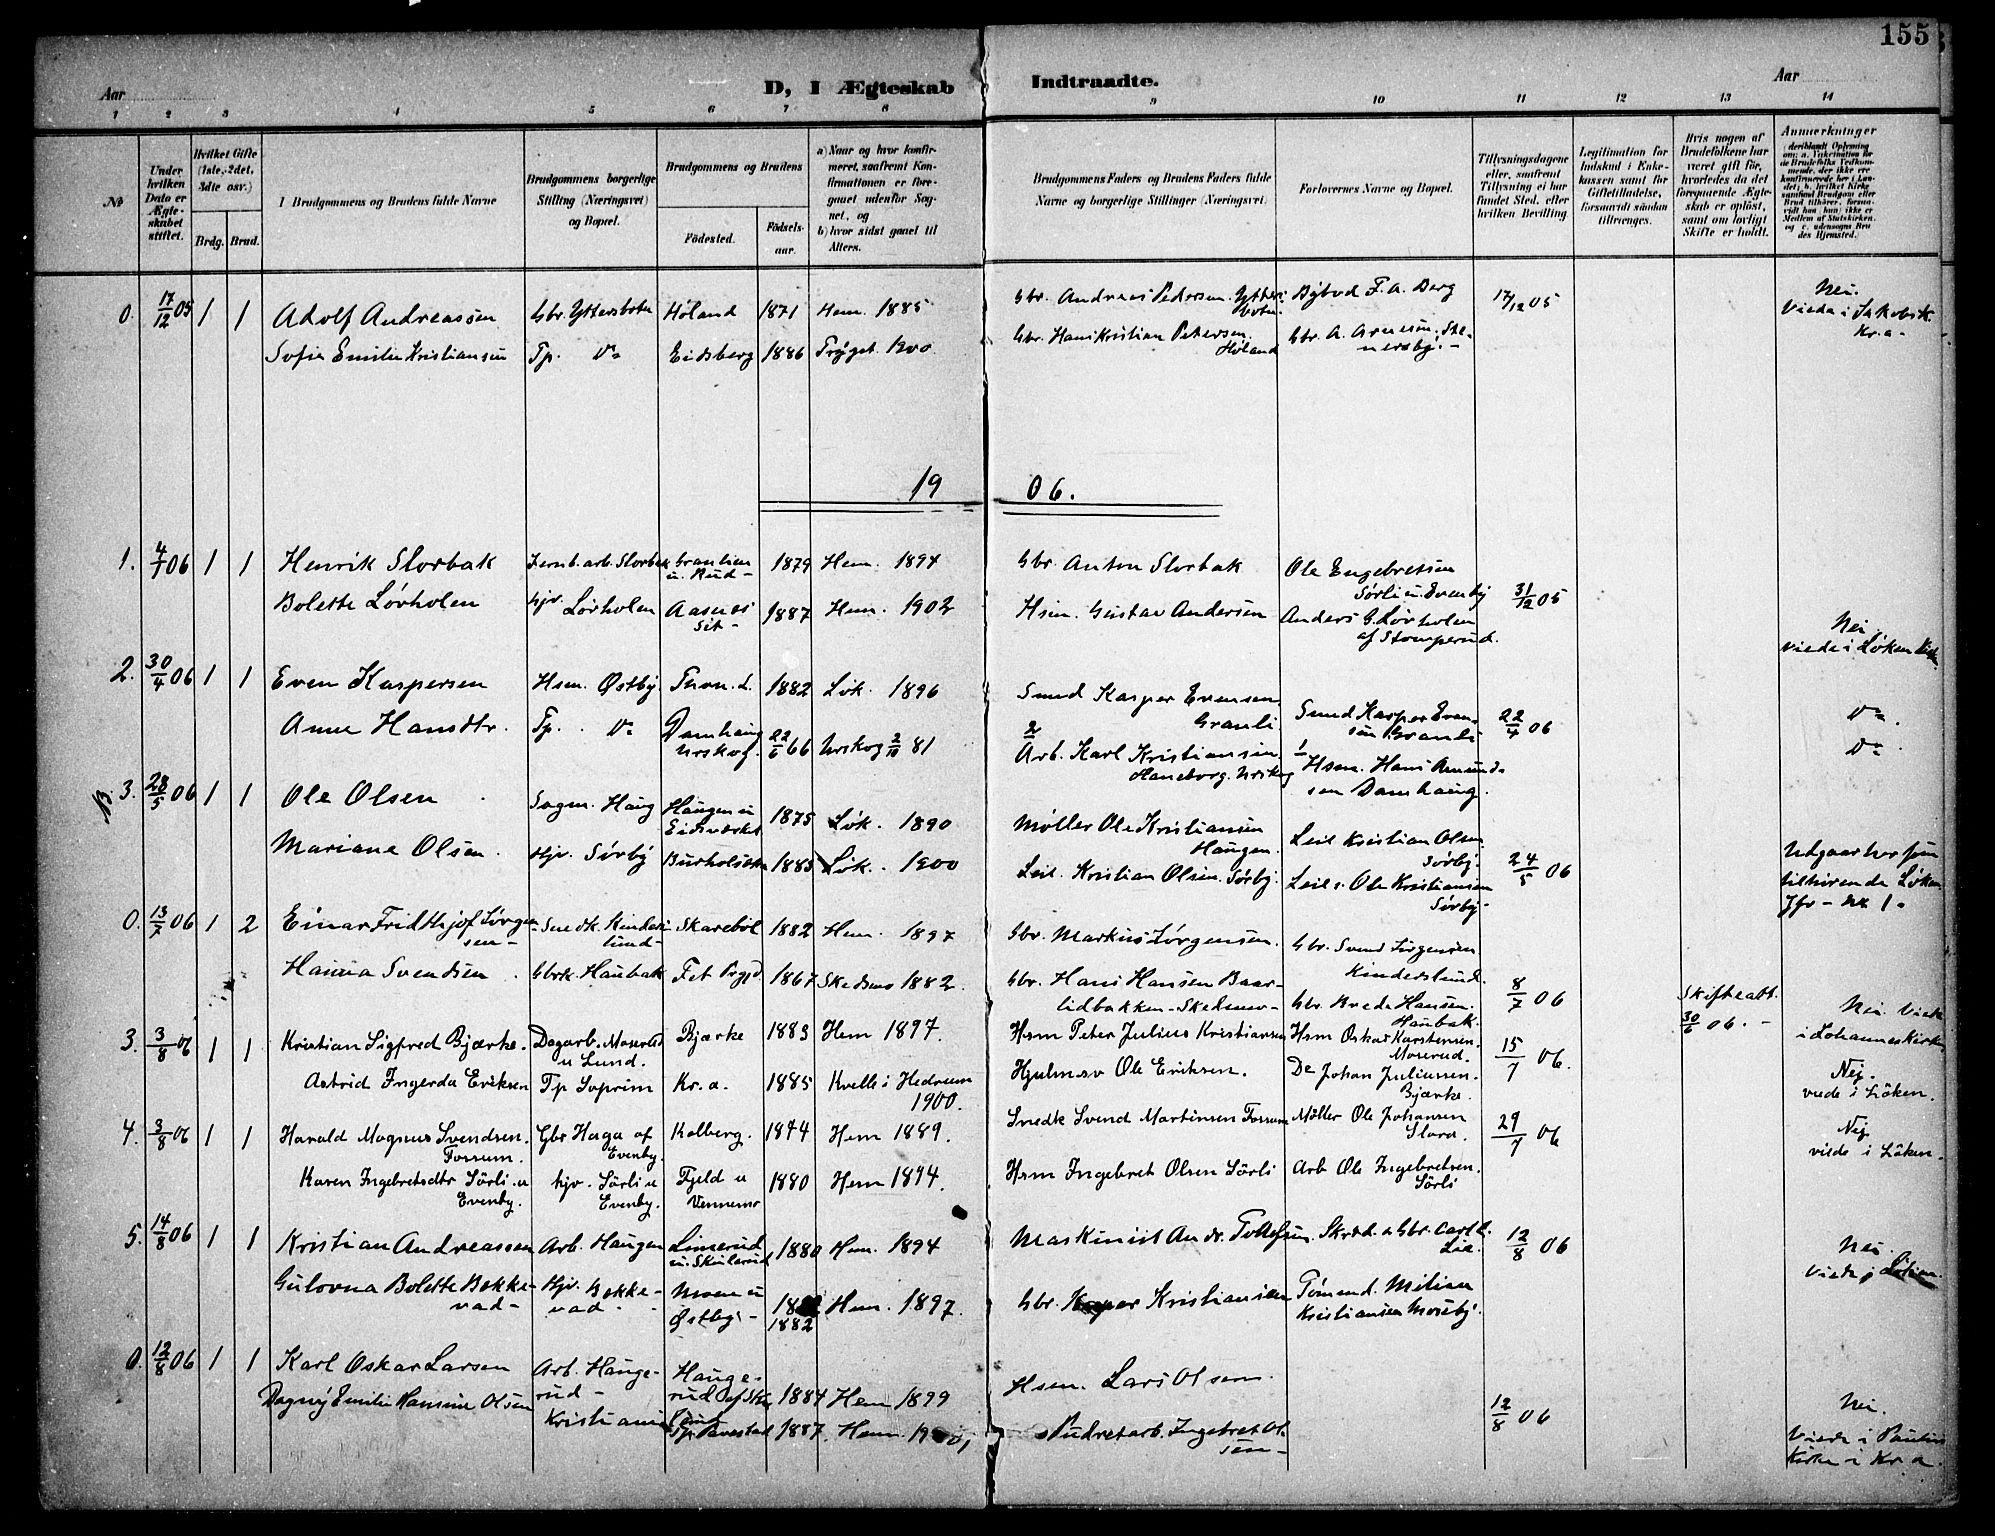 155
Aar
D, I Ægteskab Indtraadte.
Aar
1 2 3 4 5 6 7 8 9 10 11 12 13 14
No
Under hvilken Dato er Ægteskabet stiftet.
Hvilket Gifte (1ste, 2det, 3die osv.)
Brdg. Brud.
Brudgommens og Brudens fulde Navne
Brudgommens borgerlige Stilling (Næringsvei) og Bopæl.
Brudgommens og Brudens
Födested. Födsels-aar.
a) Naar og hvor konfirmeret, saafremt Konfirmationen er foregaaet udenfor Sognet, og
b) hvor sidst gaaet til Alters.
Brudgommens Faders og Brudens Faders fulde Navne og borgerlige Stillinger (Næringsvei).
Forlovernes Navne og Bopæl.
Tillysningsdagene eller, saafremt Tillysning ei har fundet Sted, efter hvilken Bevilling.
Legitimation for Indskud i Enkekassen samt for Giftetilladelse, forsaavidt saadan tiltrænges.
Hvis nogen af Brudefolkene har været gift før, hvorledes da det foregaaende Ægteskab er opløst, samt om lovligt Skifte er holdt.
Anmerkninger
0. 17/12 05 1 1 Adolf Andreassen Gbr. Yttersbotn Höland 1871 Hem. 1885 Gbr. Andreas Pedersen Yttersbotn Bybud F. A. Berg 17/12 05 Nei. Viede i Jakobsk. Kr.a-
Sofie Emilie Kristiansen Tp. do Eidsberg 1886 Trøgst. 1900 Gbr. Hans Kristian Petersen Höland Gbr. A. Arnesen
1906.
1. 4/1 06 1 1 Henrik Slorbak Jernb. arb. Slorbak Granlien u. Rud- 1879 Hem. 1894 Gbr. Anton Slorbak Ole Engebretsen Sørli u. Evenby 31/12 05
Bolette Lövholen Hjv. Lövholen Aasnes 1887 Hem. 1902 Hsm. Gustav Andersen Anders G. Lövholen af Stomperud. Nei. viede i Løken Kirke
2. 30/4 06 1 1 Even Kaspersen Hsm. Østby 1882 Løk. 1896 Smed Kasper Evensen Granli Smed Kasper Evensen Granli 22/4 06 do.
Anne Hansdtr. Tp. do Damhaug Urskog. 22/6 66 Urskog 2/10 81 Arb. Karl Kristiansen Haneborg. Urskog Hsm. Hans Amundsen Damhaug. do
3. 28/5 06 1 1 Ole Olsen Sagm. Haug Haugen u Eidsværket 1875 Løk. 1890 Møller Ole Kristiansen Haugen. Leil Kristian Olsen Sørby. 24/5 06
Mariane Olsen. Hjv. Sørby 1885 Løk. 1900 Leil. Kristian Olsen. Sørby. Leil. Ole Kristiansen Sørby- Udgaar her som tilhørende Løken Jfr- nr 1.
0. 13/7 06 1 2 Einar Fridthjof Jørgensen- Snedk. Kinderslund- Skarebøl 1882 Hem. 1897 Gbr. Markus Jørgensen. Gbr. Svend Jörgensen Kinderslund.
Hanna Svendsen Gbrk. Haubak Fet Prgjd. 1867 Skedsmo 1882. Gbr. Hans Hansen Baarlidbakken - Skedsmo- Gbr. Brede Hansen. Haubak. 8/7 06 Skifteatt. 30/6 06. - Nei. Viede i Johanneskirken
3. 3/8 06 1 1 Kristian Sigfred Bjærke. Dagarb. Moserud u Lund. Bjærke 1883 Hem 1897. Hsm Peter Julius Kristiansen Hsm Oskar Karstensen. Moserud. 15/7 06.
Astrid Ingerda Eriksen Tp Soprim Kr. a. 1885 Kvelle i Hedrum 1900. Hjulm. Ole Eriksen. Do Johan Juliussen. Bjærke. Nej. viede i Löken.
4. 3/8 06 1 1 Harald Magnus Svendsen. Fossum. Gbr Haga af Evenby. Kolberg. 1874 Hem 1889. Snedk Svend Martinsen Fossum Møller Ole Johansen Slora. 29/7 06 Nej. viede i Löken.
Karen Ingebretsdtr Sörli u Evenby. Hjv. Sörli u Evenby. Fjeld u Vennemo 1880 Hem 1894. Hsm Ingebret Olsen Sörli Arb Ole Ingebretsen. Sörli
5. 14/8 06 1 1 Kristian Andreassen Arb. Haugen Limerud u. Skulerud 1880 Hem. 1894 Maskinist Andr. Tollefsen. Skræd. & Gbr. Carl L. Lie. 12/8 06
Gulovna Bolette Bekkevad- Hjv. Bekkevad- Moen u Østby- 1882 Hem. 1897. Gbr. Kasper Kristiansen Tömmend. Milian Kristiansen Moseby. Nei. Viede i Löken.
0. 12/8 06 1 1 Karl Oskar Larsen Arb. Haugerud- Haugerud af 1884 Hem 1899 Hsm. Lars Olsen.
Dagny Emilie Hansine Olsen Kristiania Tp. Pavestad 1887. Hem. Ingebret Olsen- 12/8 06 Nei. Viede i Paulus Kirke i Kr. a.